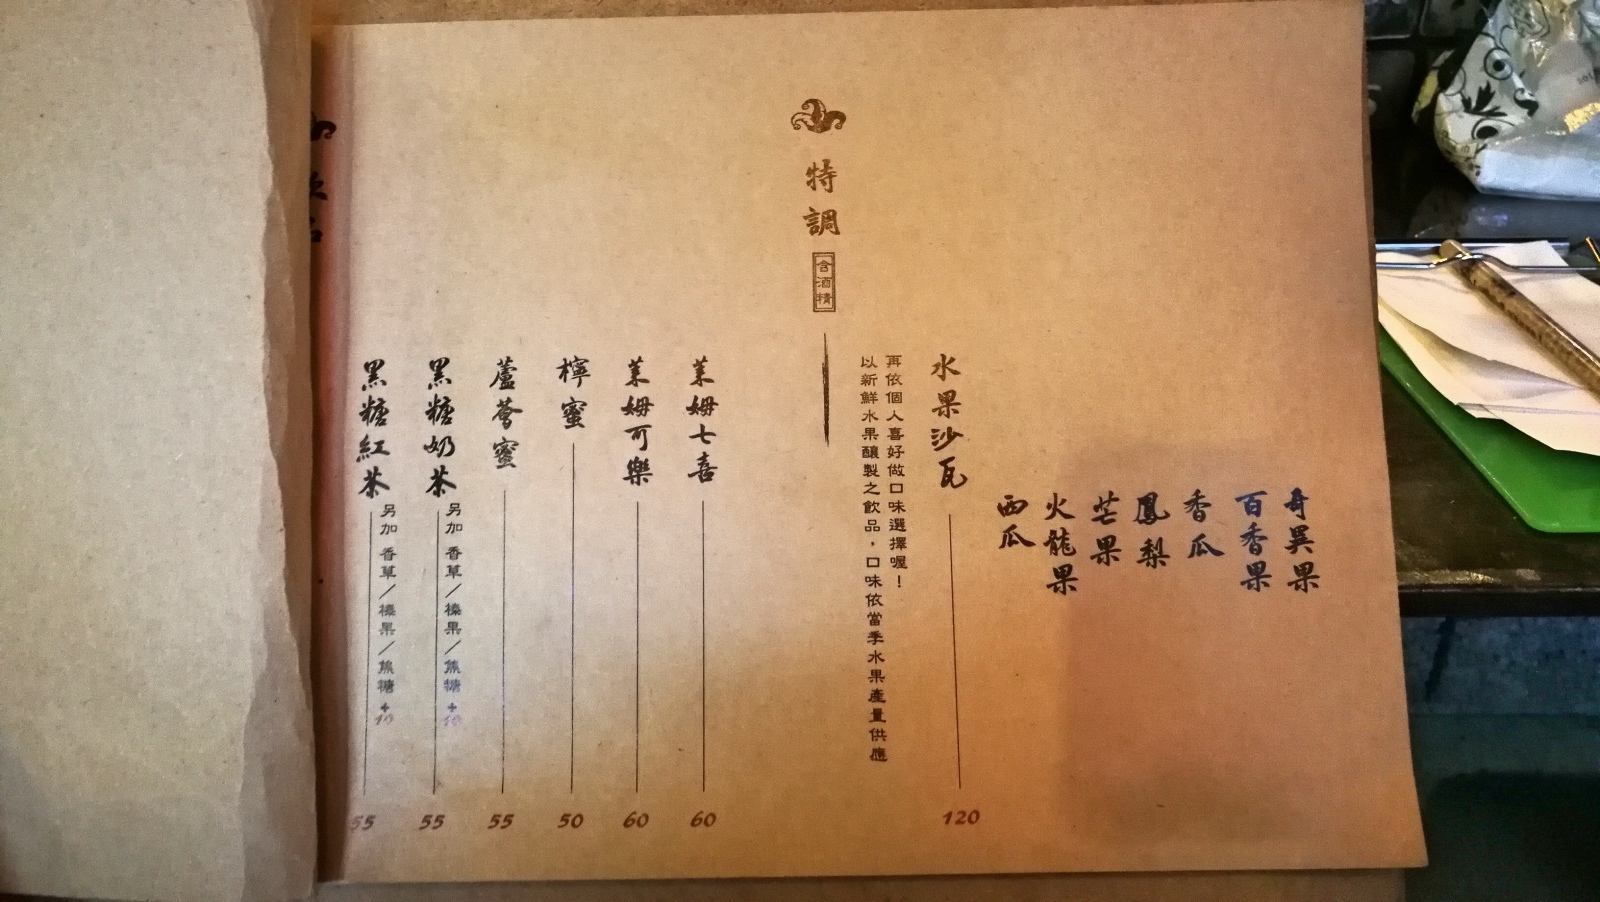 奇異果
百香果
香瓜
鳳梨
芒果
火龍果
西瓜
水果沙瓦
120
再依個人喜好做口味選擇喔！
以新鮮水果釀製之飲品，口味依當季水果產量供應
特調
含酒精
萊姆七喜
60
萊姆可樂
60
檸蜜
50
蘆薈蜜
55
黑糖奶茶
另加 香草／榛果／焦糖 +10
55
黑糖紅茶
另加 香草／榛果／焦糖 +10
55